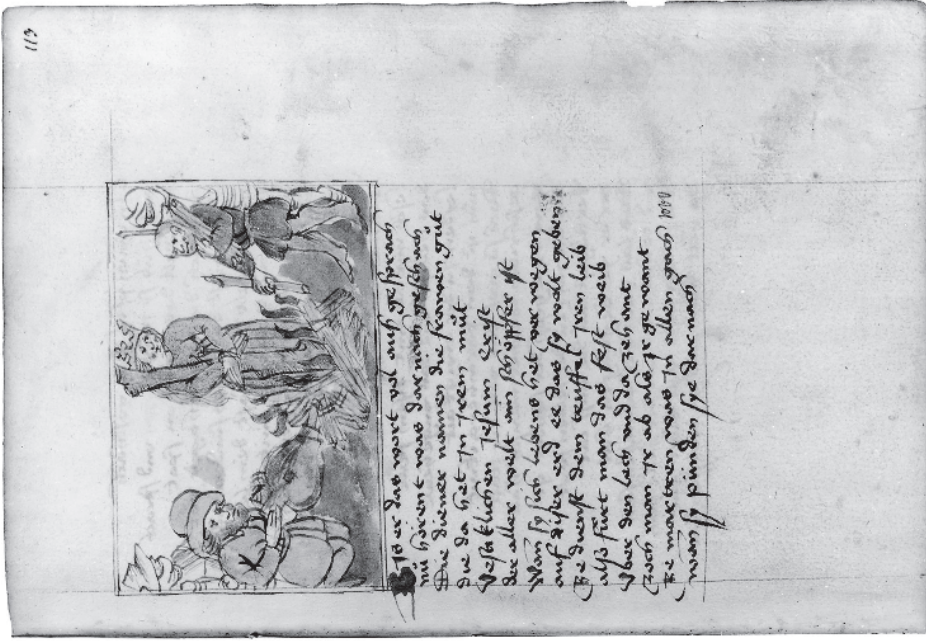 113
Als er das wort vol auß gesprach
nu hörent was dar nach geschach
Die diener namen die frawen gůt
die da het jn jrem můt
Vestiklichen jesum crist
der aller welt ain schöpffer ist
Wan sy sich lebens het verwegen
auf diser erd ee das sy wolt geben
ze dienst dem teuffel jren leib
alß fůrt man das fest weib
Vber den lech und da zehant
zoch man jr ab als jr gewant
ze martren was jn allen gach
wan sy pünden sye dar nach